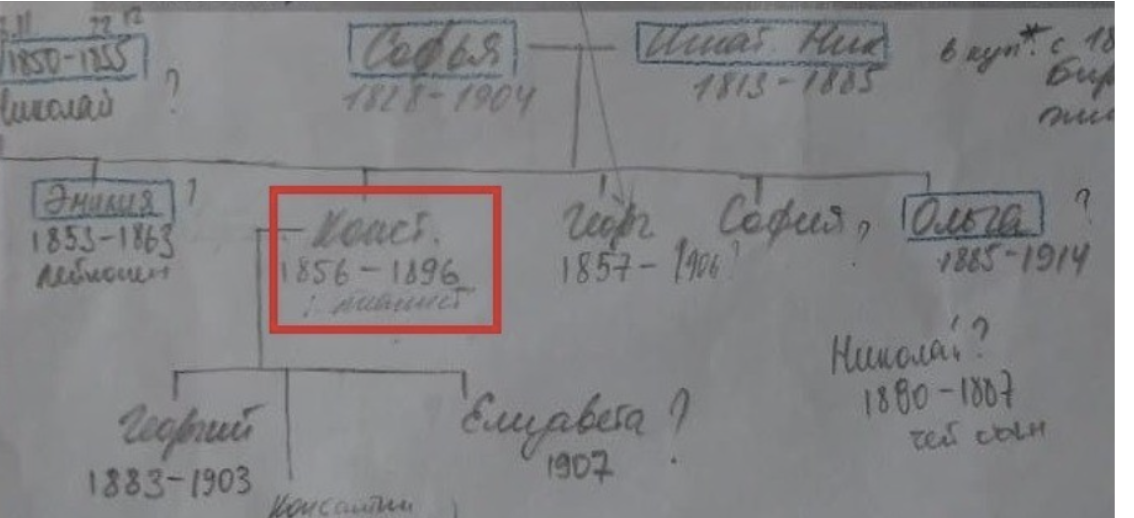 22
1850-1855
Николай ?
Софья
1828-1904
Игнат. Ник
1813-1885
в куп* с 18
Эмилия ?
1853-1863
Конст.
1856-1896
: пианист
Георг
1857-1906?
София ?
Ольга ?
1885-1914
Николай?
1880-1887
чей сын
Георгий
1883-1903
Елизавета ?
1907